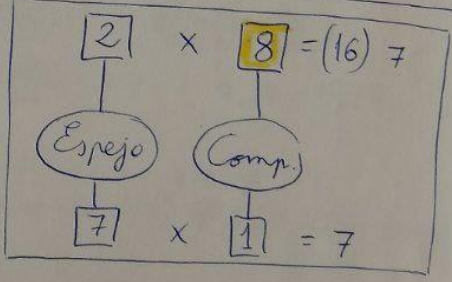 2 x 8 = (16) 7
Espejo Comp.
7 x 1 = 7